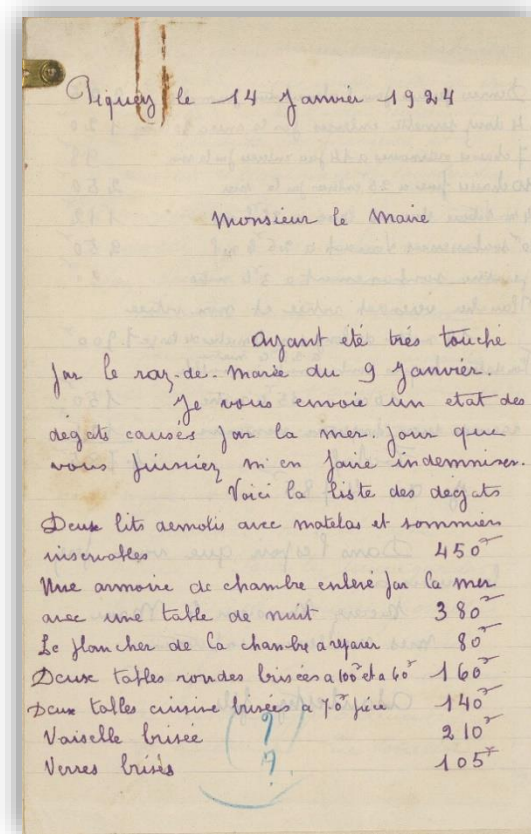 Piquey le 14 Janvier 1924
Monsieur le Maire
Ayant été très touché
par le raz-de-marée du 9 Janvier.
Je vous envoie un etat des
dégats causés par la mer. pour que
vous puissiez m'en faire indemniser.
Voici la liste des dégats
Deux lits demolis avec matelas et sommiers
inservables 450f
Une armoire de chambre enlevé par la mer
avec une table de nuit 380f
Le plancher de la chambre a reparer 80f
Deux tables rondes brisées a 100f et a 60f 160f
Deux tables cuisine brisées a 70f pièce 140f
Vaiselle brisée 210f
Verres brisés 105f